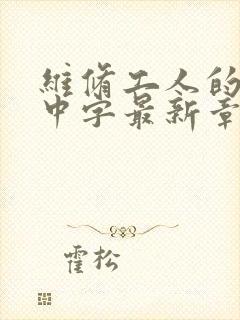 維脩工人的
中字最新章
霍松